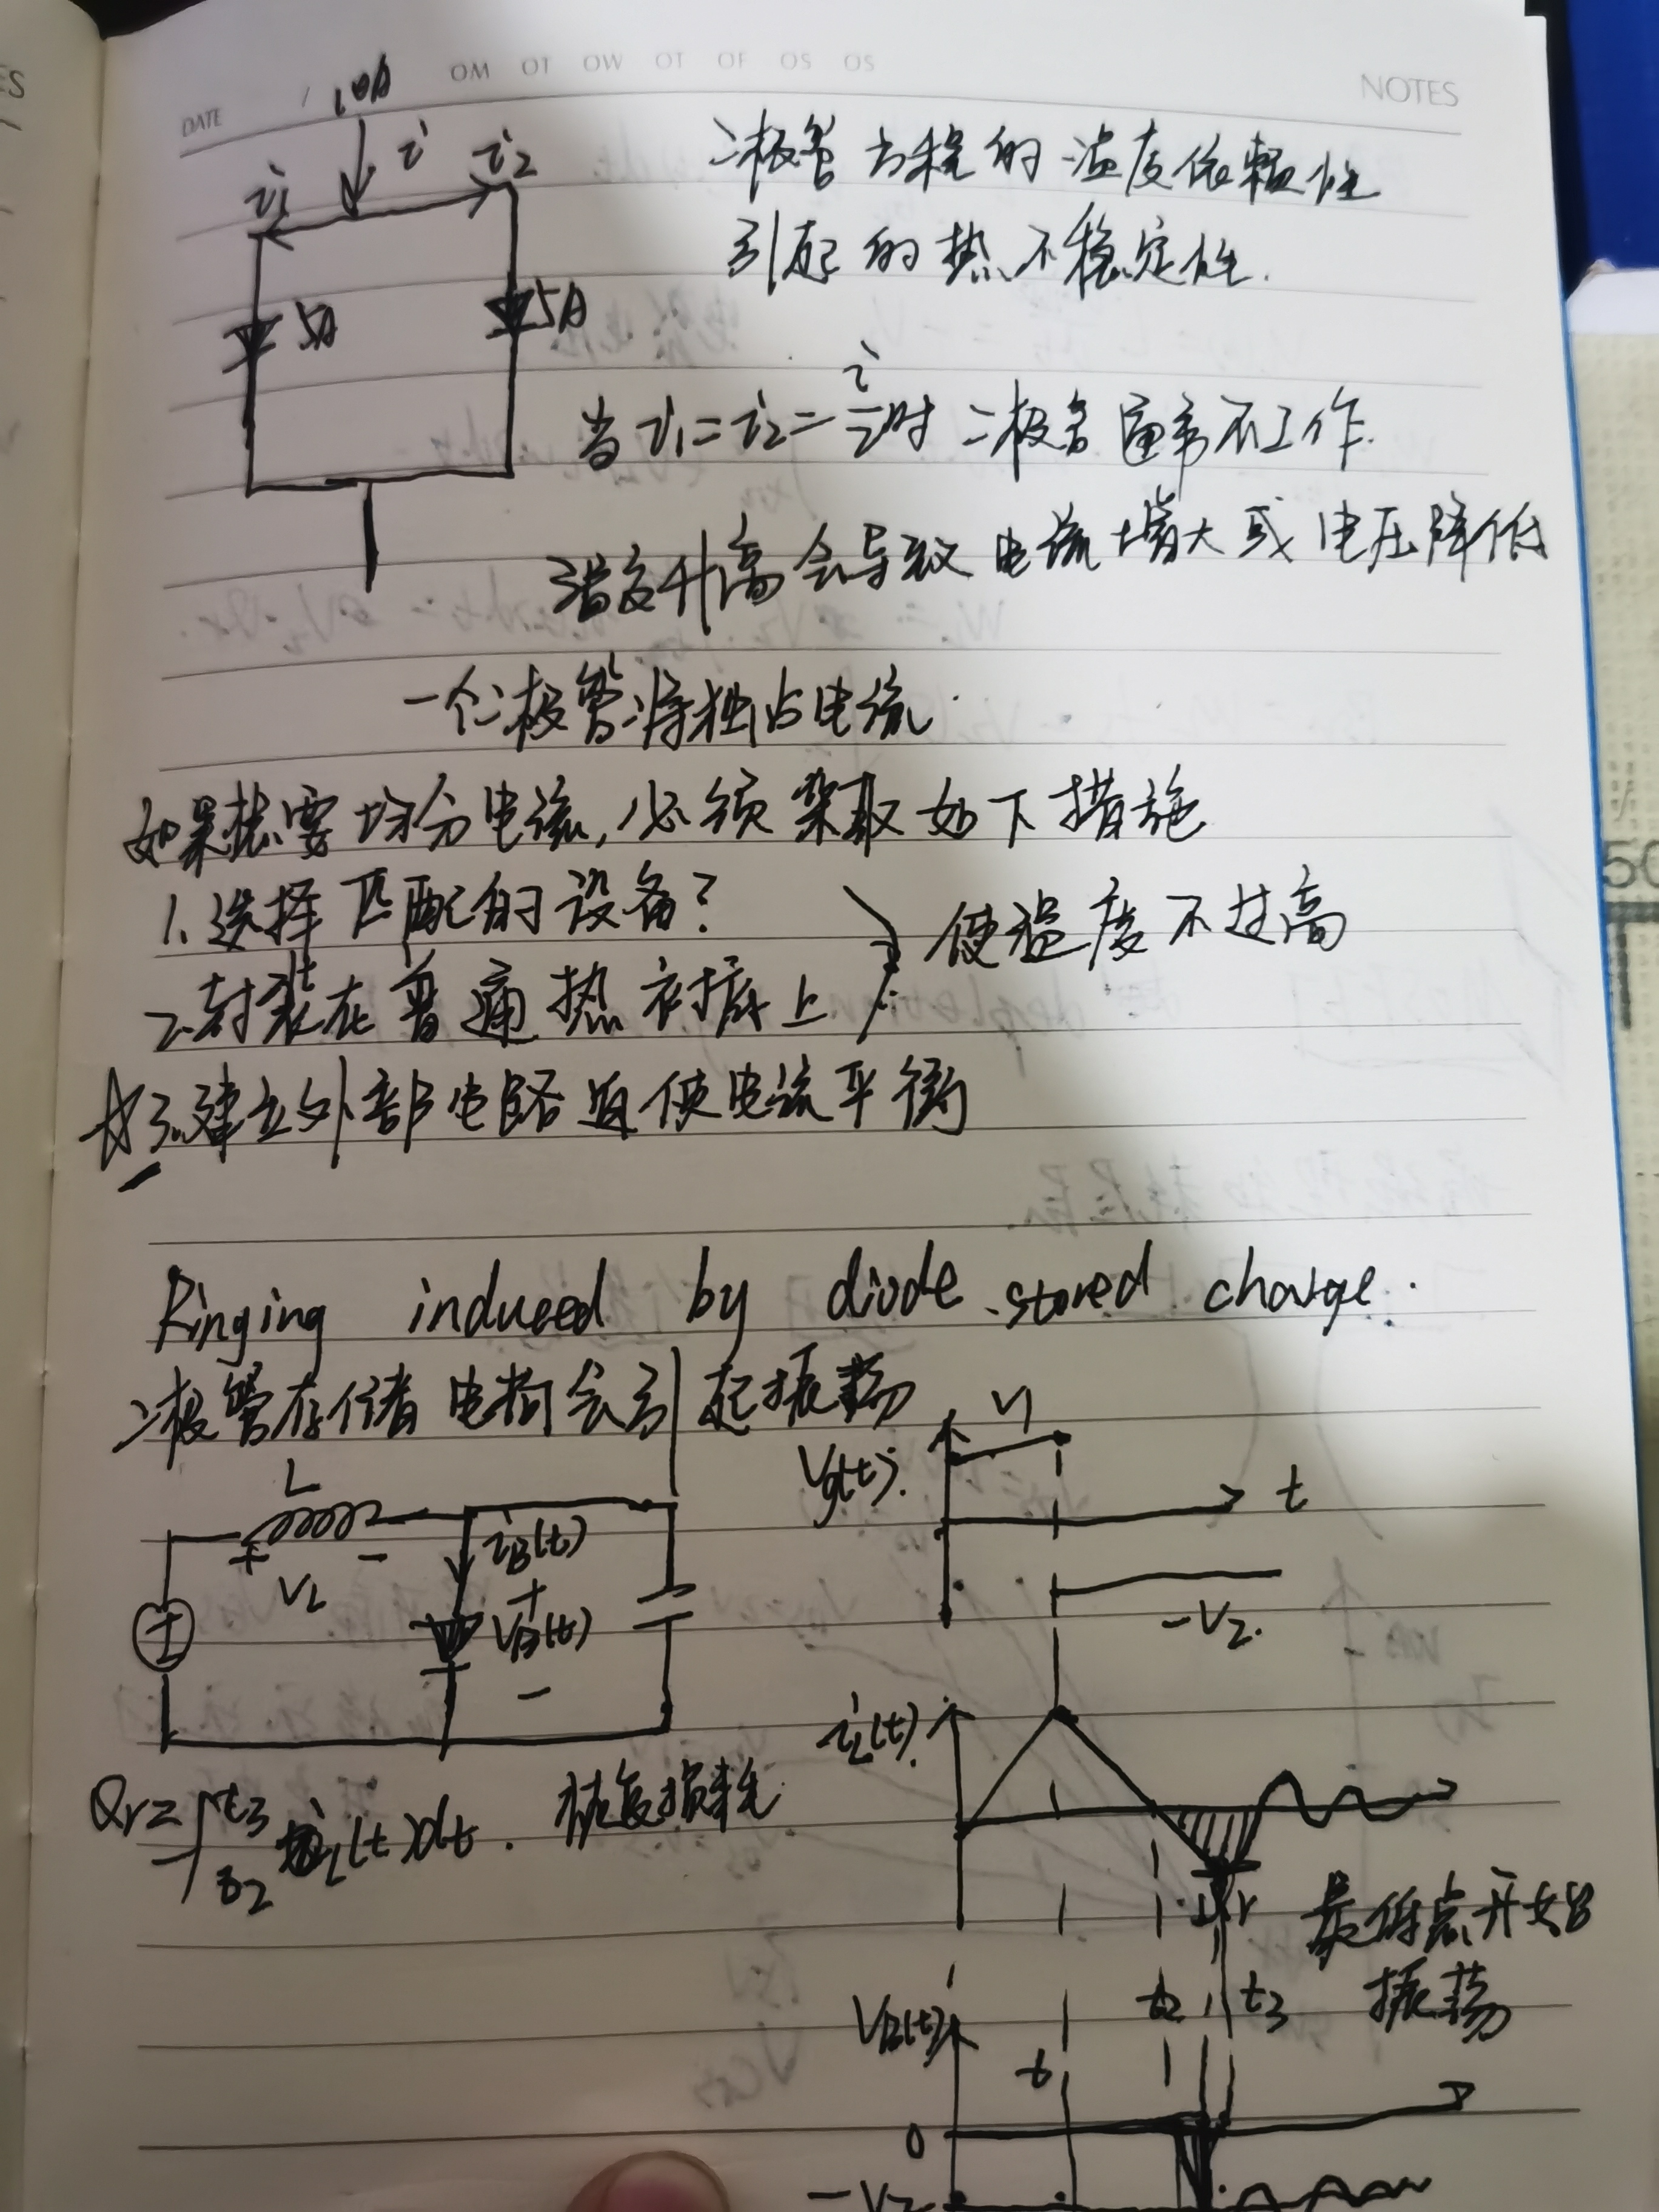 DATE
OM OT OW OT OF OS OS
NOTES
10A
i
i₁
i₂
5A
5A
二极管方程的温度依赖性
引起的热不稳定性.
当 i₁=i₂=i/2时 二极管通常不工作.
温度升高会导致电流增大或电压降低
一个二极管将独占电流.
如果想要均分电流,必须采取如下措施
1.选择匹配的设备?
2.封装在普通热衬底上
使温度不过高
☆3.建立外部电路迫使电流平衡
Ringing induced by diode stored charge.
二极管存储电荷会引起振荡
L
+
-
V_L
i_B(t)
+
V_B(t)
-
Vg(t).
V₁
t
-V₂.
i_L(t).
Qr=-∫_{t₂}^{t₃} i_L(t)dt. 恢复损耗
最低点开始
振荡
t₂
t₃
V_B(t)
t
0
-V₂
50